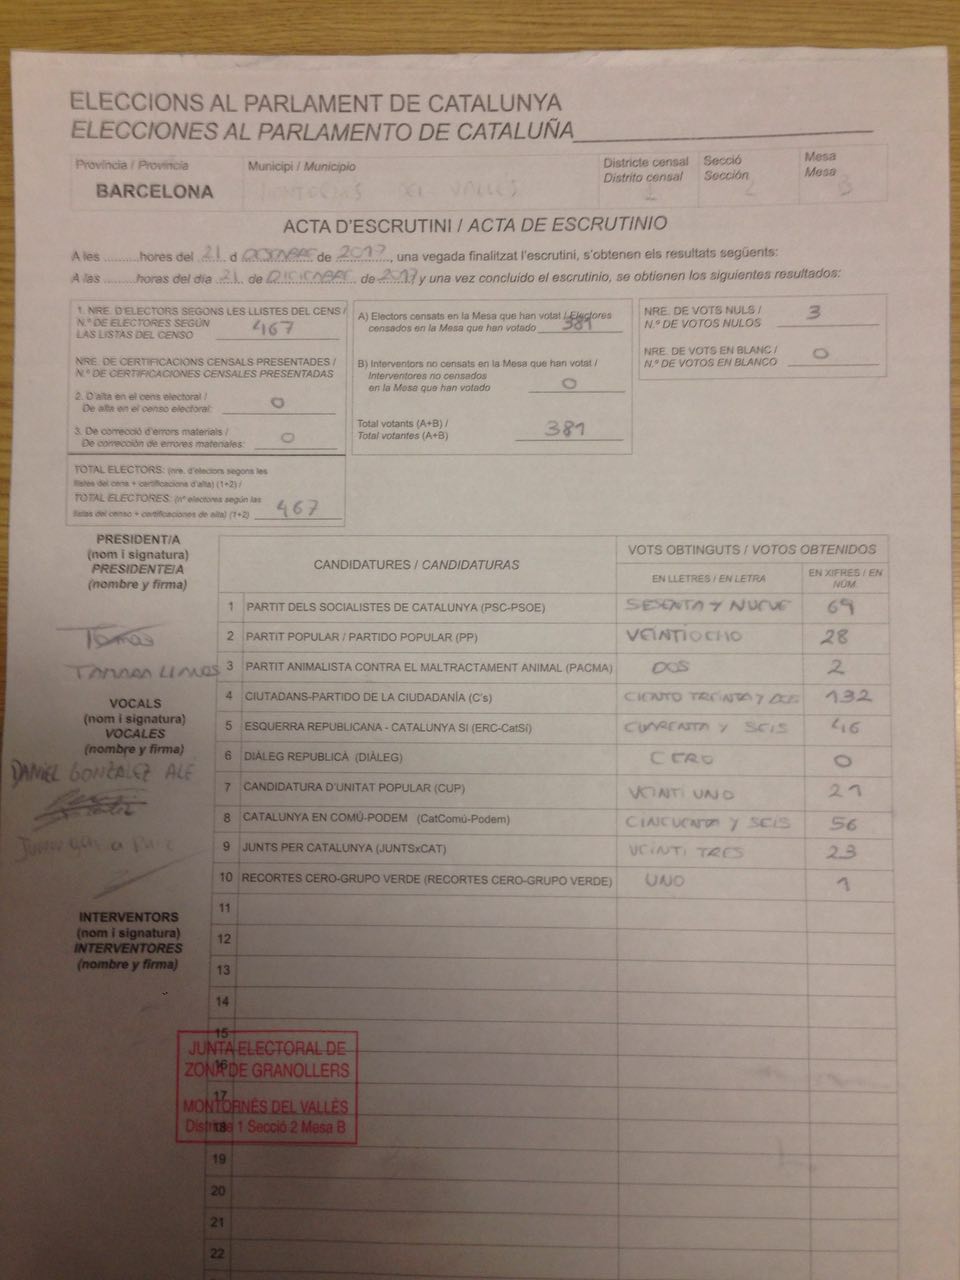 ELECCIONS AL PARLAMENT DE CATALUNYA
ELECCIONES AL PARLAMENTO DE CATALUÑA
Província / Provincia
BARCELONA
Municipi / Municipio
MONTORNÈS DEL VALLÈS
Districte censal
Distrito censal
1
Secció
Sección
2
Mesa
Mesa
B
ACTA D'ESCRUTINI / ACTA DE ESCRUTINIO
A les ..........hores del 21 d de 2017, una vegada finalitzat l'escrutini, s'obtenen els resultats següents:
A las ..........horas del día 21 de DICIEMBRE de 2017 y una vez concluido el escrutinio, se obtienen los siguientes resultados:
1. NRE. D'ELECTORS SEGONS LES LLISTES DEL CENS /
N.º DE ELECTORES SEGÚN
LAS LISTAS DEL CENSO 467
NRE. DE CERTIFICACIONS CENSALS PRESENTADES /
N.º DE CERTIFICACIONES CENSALES PRESENTADAS
2. D'alta en el cens electoral /
De alta en el censo electoral: 0
3. De correcció d'errors materials /
De corrección de errores materiales: 0
TOTAL ELECTORS: (nre. d'electors segons les
llistes del cens + certificacions d'alta) (1+2) /
TOTAL ELECTORES: (nº electores según las
listas del censo + certificaciones de alta) (1+2) 467
A) Electors censats en la Mesa que han votat / Electores
censados en la Mesa que han votado 381
B) Interventors no censats en la Mesa que han votat /
Interventores no censados
en la Mesa que han votado 0
Total votants (A+B) /
Total votantes (A+B) 381
NRE. DE VOTS NULS /
N.º DE VOTOS NULOS 3
NRE. DE VOTS EN BLANC /
N.º DE VOTOS EN BLANCO 0
PRESIDENT/A
(nom i signatura)
PRESIDENTE/A
(nombre y firma)
VOCALS
(nom i signatura)
VOCALES
(nombre y firma)
DANIEL GONZALEZ ALE
INTERVENTORS
(nom i signatura)
INTERVENTORES
(nombre y firma)
CANDIDATURES / CANDIDATURAS
VOTS OBTINGUTS / VOTOS OBTENIDOS
EN LLETRES / EN LETRA
EN XIFRES / EN NÚM.
1 PARTIT DELS SOCIALISTES DE CATALUNYA (PSC-PSOE) SESENTA Y NUEVE 69
2 PARTIT POPULAR / PARTIDO POPULAR (PP) VEINTIOCHO 28
3 PARTIT ANIMALISTA CONTRA EL MALTRACTAMENT ANIMAL (PACMA) DOS 2
4 CIUTADANS-PARTIDO DE LA CIUDADANÍA (C's) CIENTO TREINTA Y DOS 132
5 ESQUERRA REPUBLICANA - CATALUNYA SÍ (ERC-CatSí) CUARENTA Y SEIS 46
6 DIÀLEG REPUBLICÀ (DIÀLEG) CERO 0
7 CANDIDATURA D'UNITAT POPULAR (CUP) VEINTI UNO 21
8 CATALUNYA EN COMÚ-PODEM (CatComú-Podem) CINCUENTA Y SEIS 56
9 JUNTS PER CATALUNYA (JUNTSxCAT) VEINTI TRES 23
10 RECORTES CERO-GRUPO VERDE (RECORTES CERO-GRUPO VERDE) UNO 1
11
12
13
14
15
16
17
18
19
20
21
22
JUNTA ELECTORAL DE
ZONA DE GRANOLLERS
MONTORNÈS DEL VALLÈS
Districte 1 Secció 2 Mesa B